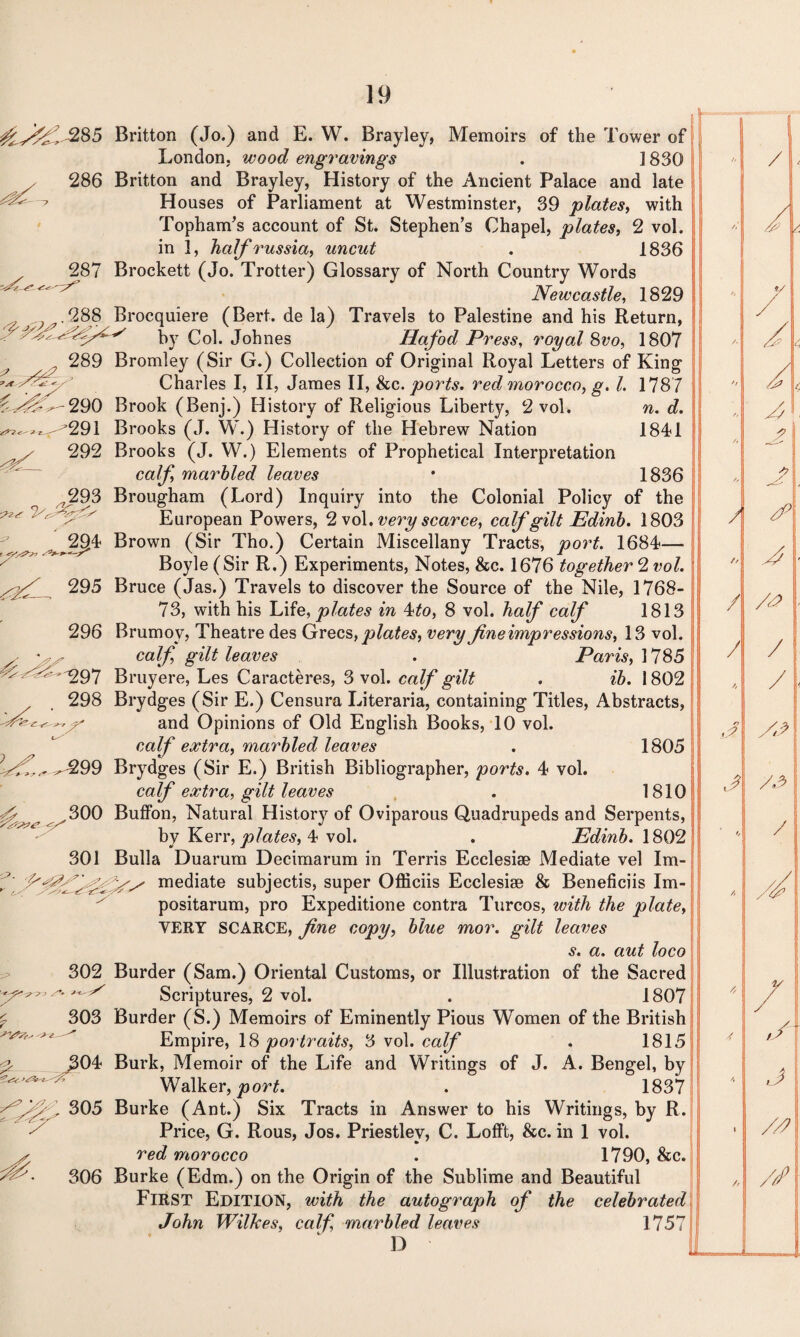 19
285 Britton (Jo.) and E. W. Brayley, Memoirs of the Tower of
London, wood engravings . 1830
286 Britton and Brayley, History of the Ancient Palace and late
Houses of Parliament at Westminster, 39 plates, with
Topham's account of St. Stephen's Chapel, plates, 2 vol.
in 1, half russia, uncut . 1836
287 Brockett (Jo. Trotter) Glossary of North Country Words
Newcastle, 1829
288 Brocquiere (Bert. de la) Travels to Palestine and his Return,
by Col. Johnes Hafod Press, royal 8vo, 1807
289 Bromley (Sir G.) Collection of Original Royal Letters of King
Charles I, II, James II, &c. ports. red morocco, g. l. 1787
290 Brook (Benj.) History of Religious Liberty, 2 vol. n. d.
291 Brooks (J. W.) History of the Hebrew Nation 1841
292 Brooks (J. W.) Elements of Prophetical Interpretation
calf, marbled leaves . 1836
293 Brougham (Lord) Inquiry into the Colonial Policy of the
European Powers, 2 vol. very scarce, calf gilt Edinb. 1803
294 Brown (Sir Tho.) Certain Miscellany Tracts, port. 1684—
Boyle (Sir R.) Experiments, Notes, &c. 1676 together 2 vol.
295 Bruce (Jas.) Travels to discover the Source of the Nile, 1768-
73, with his Life, plates in 4to, 8 vol. half calf 1813
296 Brumoy, Theatre des Grecs, plates, very fine impressions, 13 vol.
calf, gilt leaves . Paris, 1785
297 Bruyere, Les Caractères, 3 vol. calf gilt . ib. 1802
298 Brydges (Sir E.) Censura Literaria, containing Titles, Abstracts,
and Opinions of Old English Books, 10 vol.
calf extra, marbled leaves . 1805
299 Brydges (Sir E.) British Bibliographer, ports. 4 vol.
calf extra, gilt leaves . 1810
300 Buffon, Natural History of Oviparous Quadrupeds and Serpents,
by Kerr, plates, 4 vol. . Edinb. 1802
301 Bulla Duarum Decimarum in Terris Ecclesiæ Mediate vel Im-
mediate subjectis, super Officiis Ecclesiæ & Beneficiis Im-
positarum, pro Expeditione contra Turcos, with the plate,
VERY SCARCE, fine copy, blue mor. gilt leaves
s. a. aut loco
302 Burder (Sam.) Oriental Customs, or Illustration of the Sacred
Scriptures, 2 vol. . 1807
303 Burder (S.) Memoirs of Eminently Pious Women of the British
Empire, 18 portraits, 3 vol. calf . 1815
304 Burk, Memoir of the Life and Writings of J. A. Bengel, by
Walker, port. . 1837
305 Burke (Ant.) Six Tracts in Answer to his Writings, by R.
Price, G. Rous, Jos. Priestley, C. Lofft, &c. in 1 vol.
red morocco . 1790, &c.
306 Burke (Edm.) on the Origin of the Sublime and Beautiful
FIRST EDITION, with the autograph of the celebrated
John Wilkes, calf, marbled leaves 1757
D